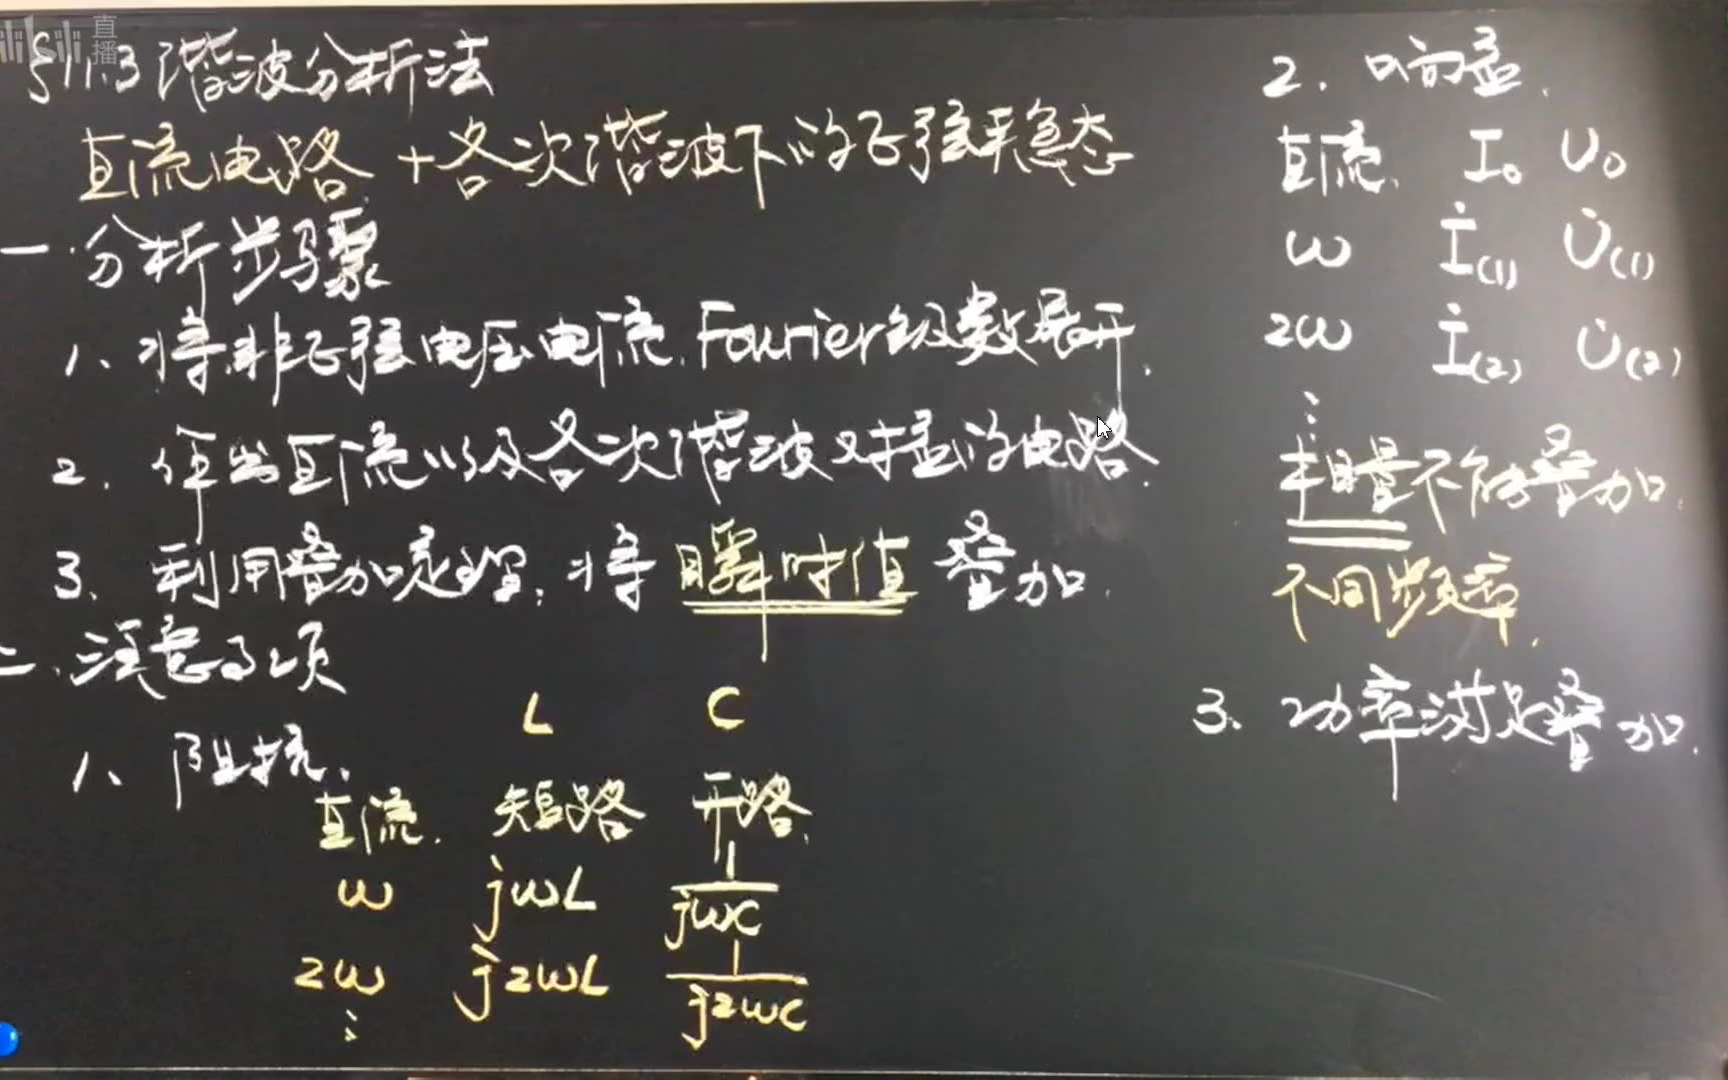 bilibili 直播
§11.3 谐波分析法
直流电路 + 各次谐波下的正弦稳态
一. 分析步骤
1、将非正弦电压电流. Fourier级数展开.
2. 作出直流以及各次谐波对应的电路.
3、利用叠加定理, 将 瞬时值 叠加.
二、注意事项
1、阻抗、
L C
直流. 短路 开路.
ω jωL 1/jωC
2ω j2ωL 1/j2ωC
⋮
2. 响应.
直流. I₀ U₀
ω İ(1) U̇(1)
2ω İ(2) U̇(2)
⋮
相量不能叠加.
不同频率.
3. 功率满足叠加.